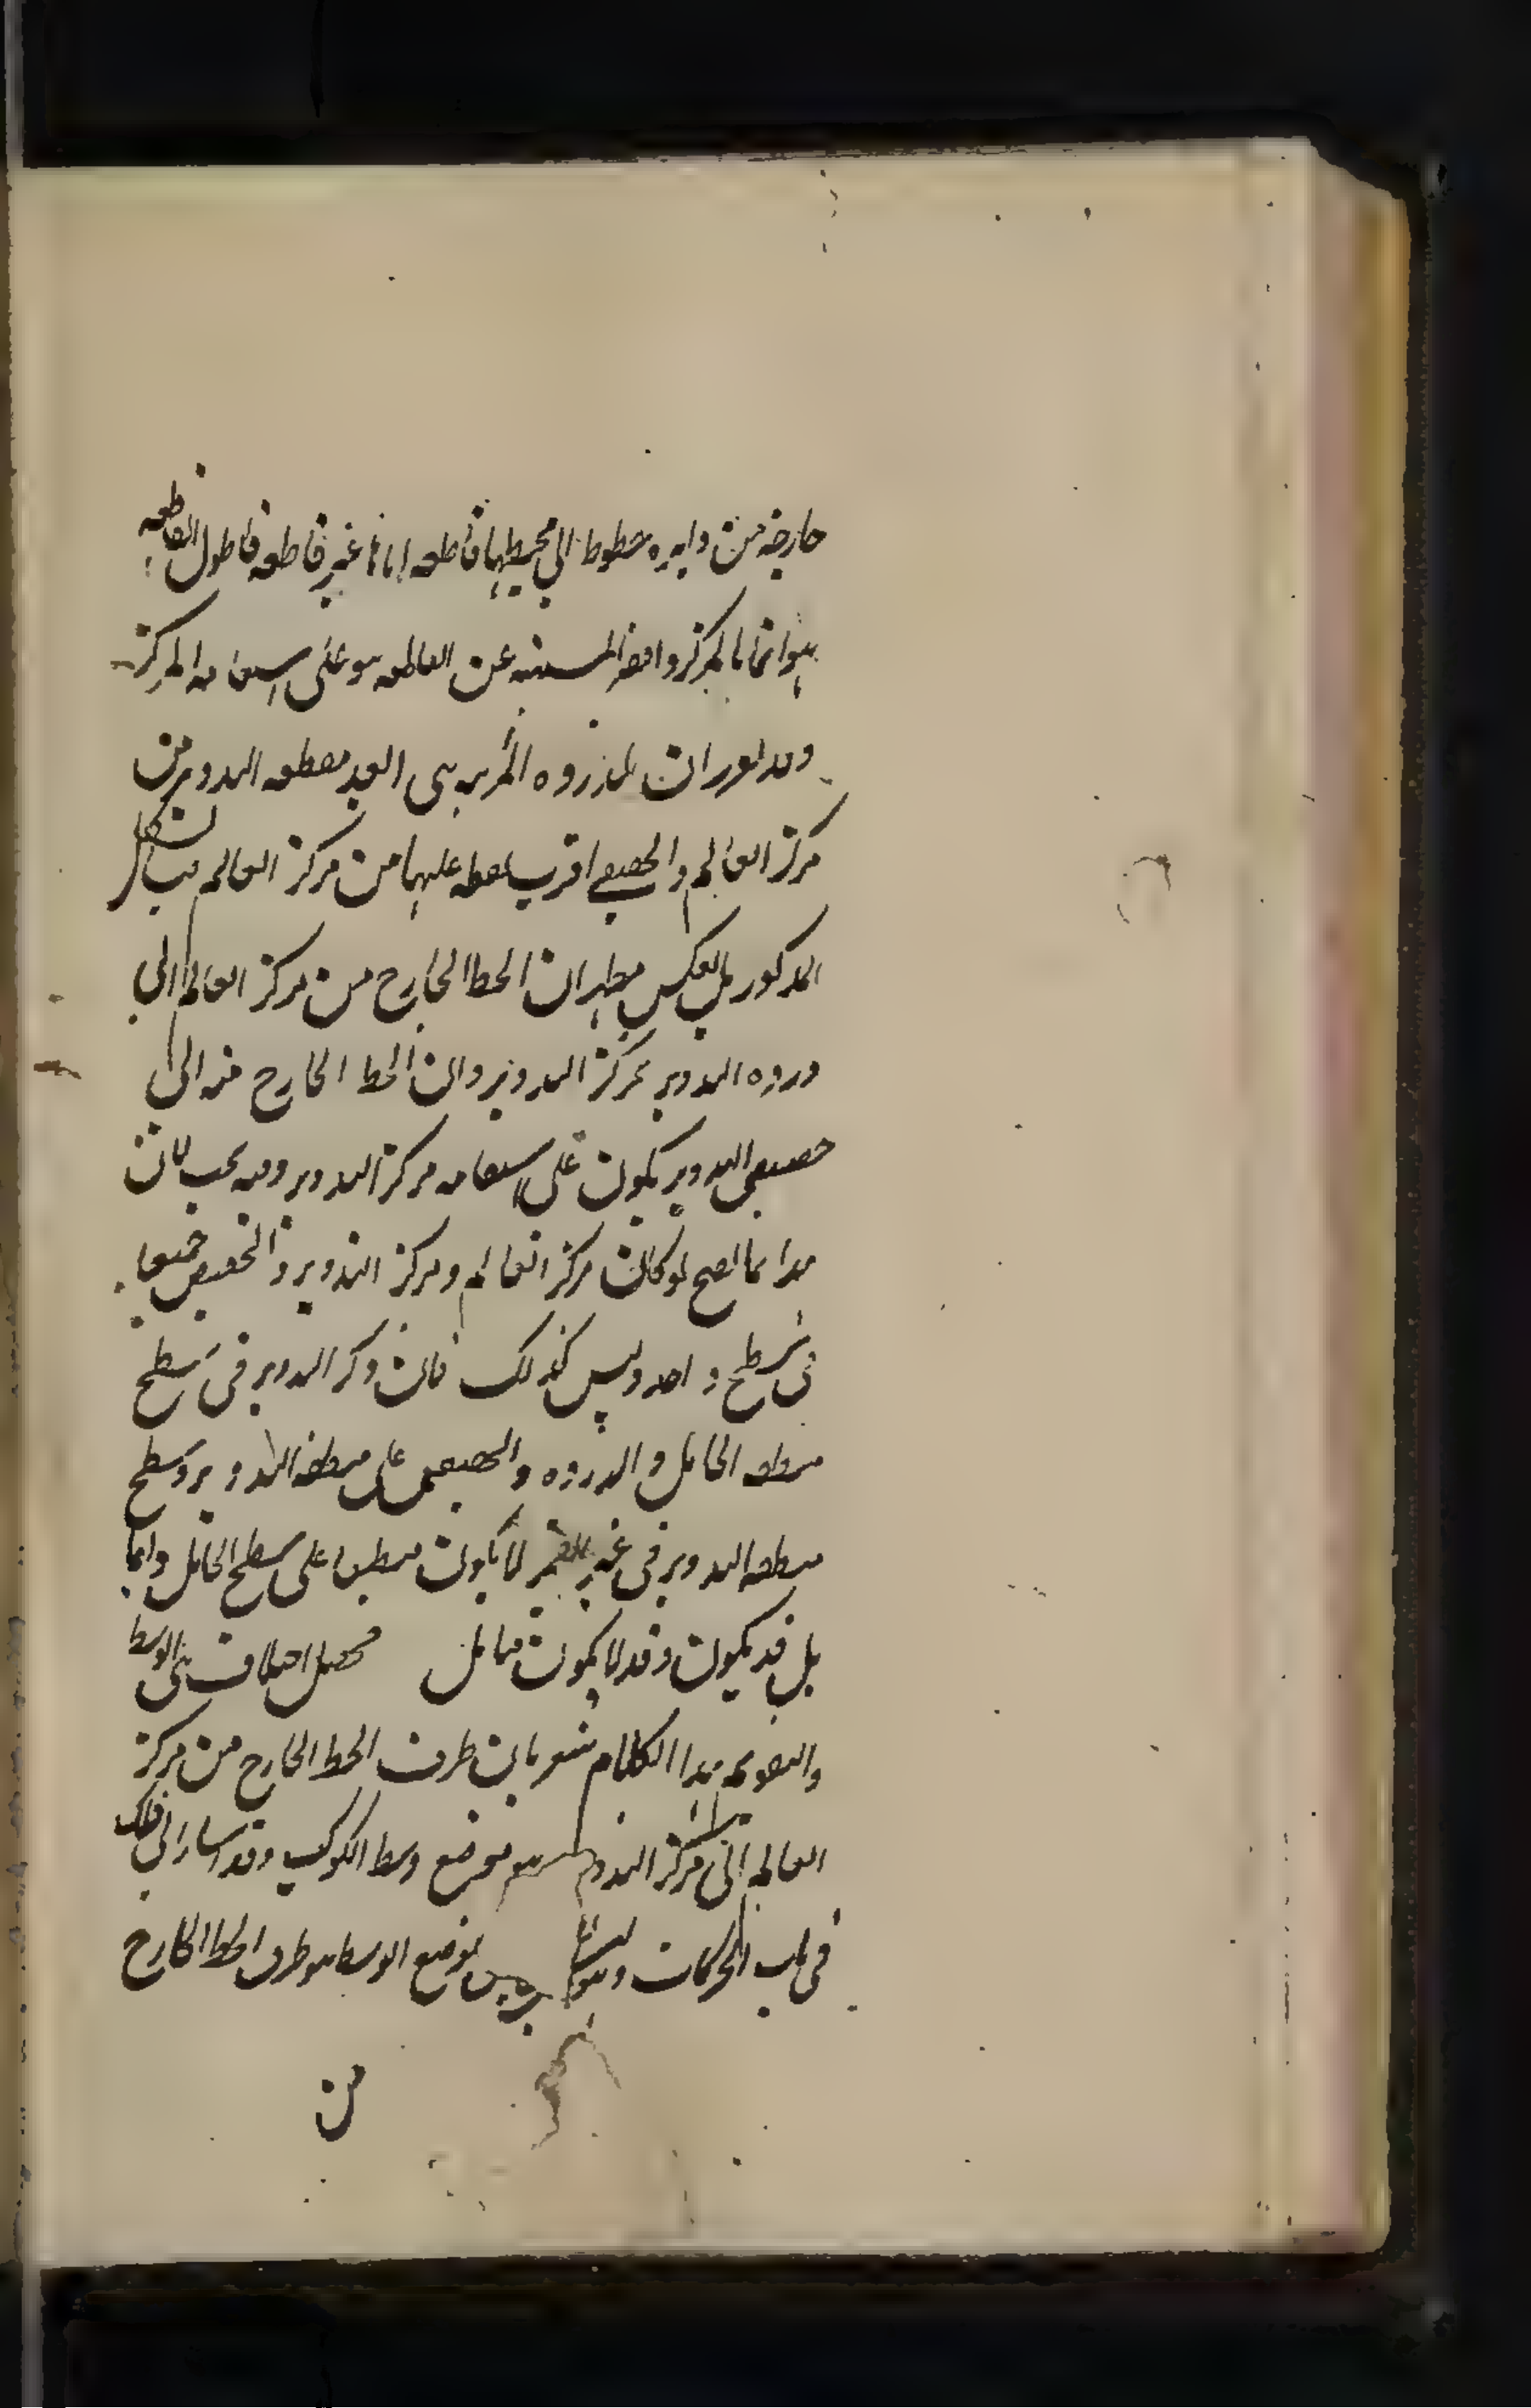 خارجة من دايره خطوط الي محيطها قاطعه اياها غير قاطعه فاطول القاطعه
هو المار بالمركز واقصر المنتهيه عن القاطعه هو على استقامه المركز
وقد تقرر ان الذروه المرييه هى ابعد نقطه التدوير من
مركز العالم والحضيض اقرب نقطه عليها من مركز العالم فبالشكل
المذكور بل بالعكس يظهر ان الخط الخارج من مركز العالم الي
ذروه التدوير يمر بمركز التدوير وان الخط الخارج منه الى
حضيض التدوير يكون على استقامه مركز التدوير وفيه بحث لان
هذا انما يصح لو كان مركز العالم ومركز التدوير والحضيض جميعا
فى سطح واحد وليس كذلك فان مركز التدوير فى سطح
منطقه الحامل والذروه والحضيض على منطقه التدوير وسطح
منطقه التدوير فى غير القمر لا يكون منطبقا على سطح الحامل دايما
بل قد يكون وقد لا يكون فتامل فحصل اختلاف بين الوسط
والتقويم هذا الكلام مشعر بان طرف الخط الخارج من مركز
العالم الى مركز التدوير هو موضع وسط الكوكب وقد اشار الى ذلك
فى باب الحركات وهو ليس موضع الوسط هو طرف الخط الخارج
من